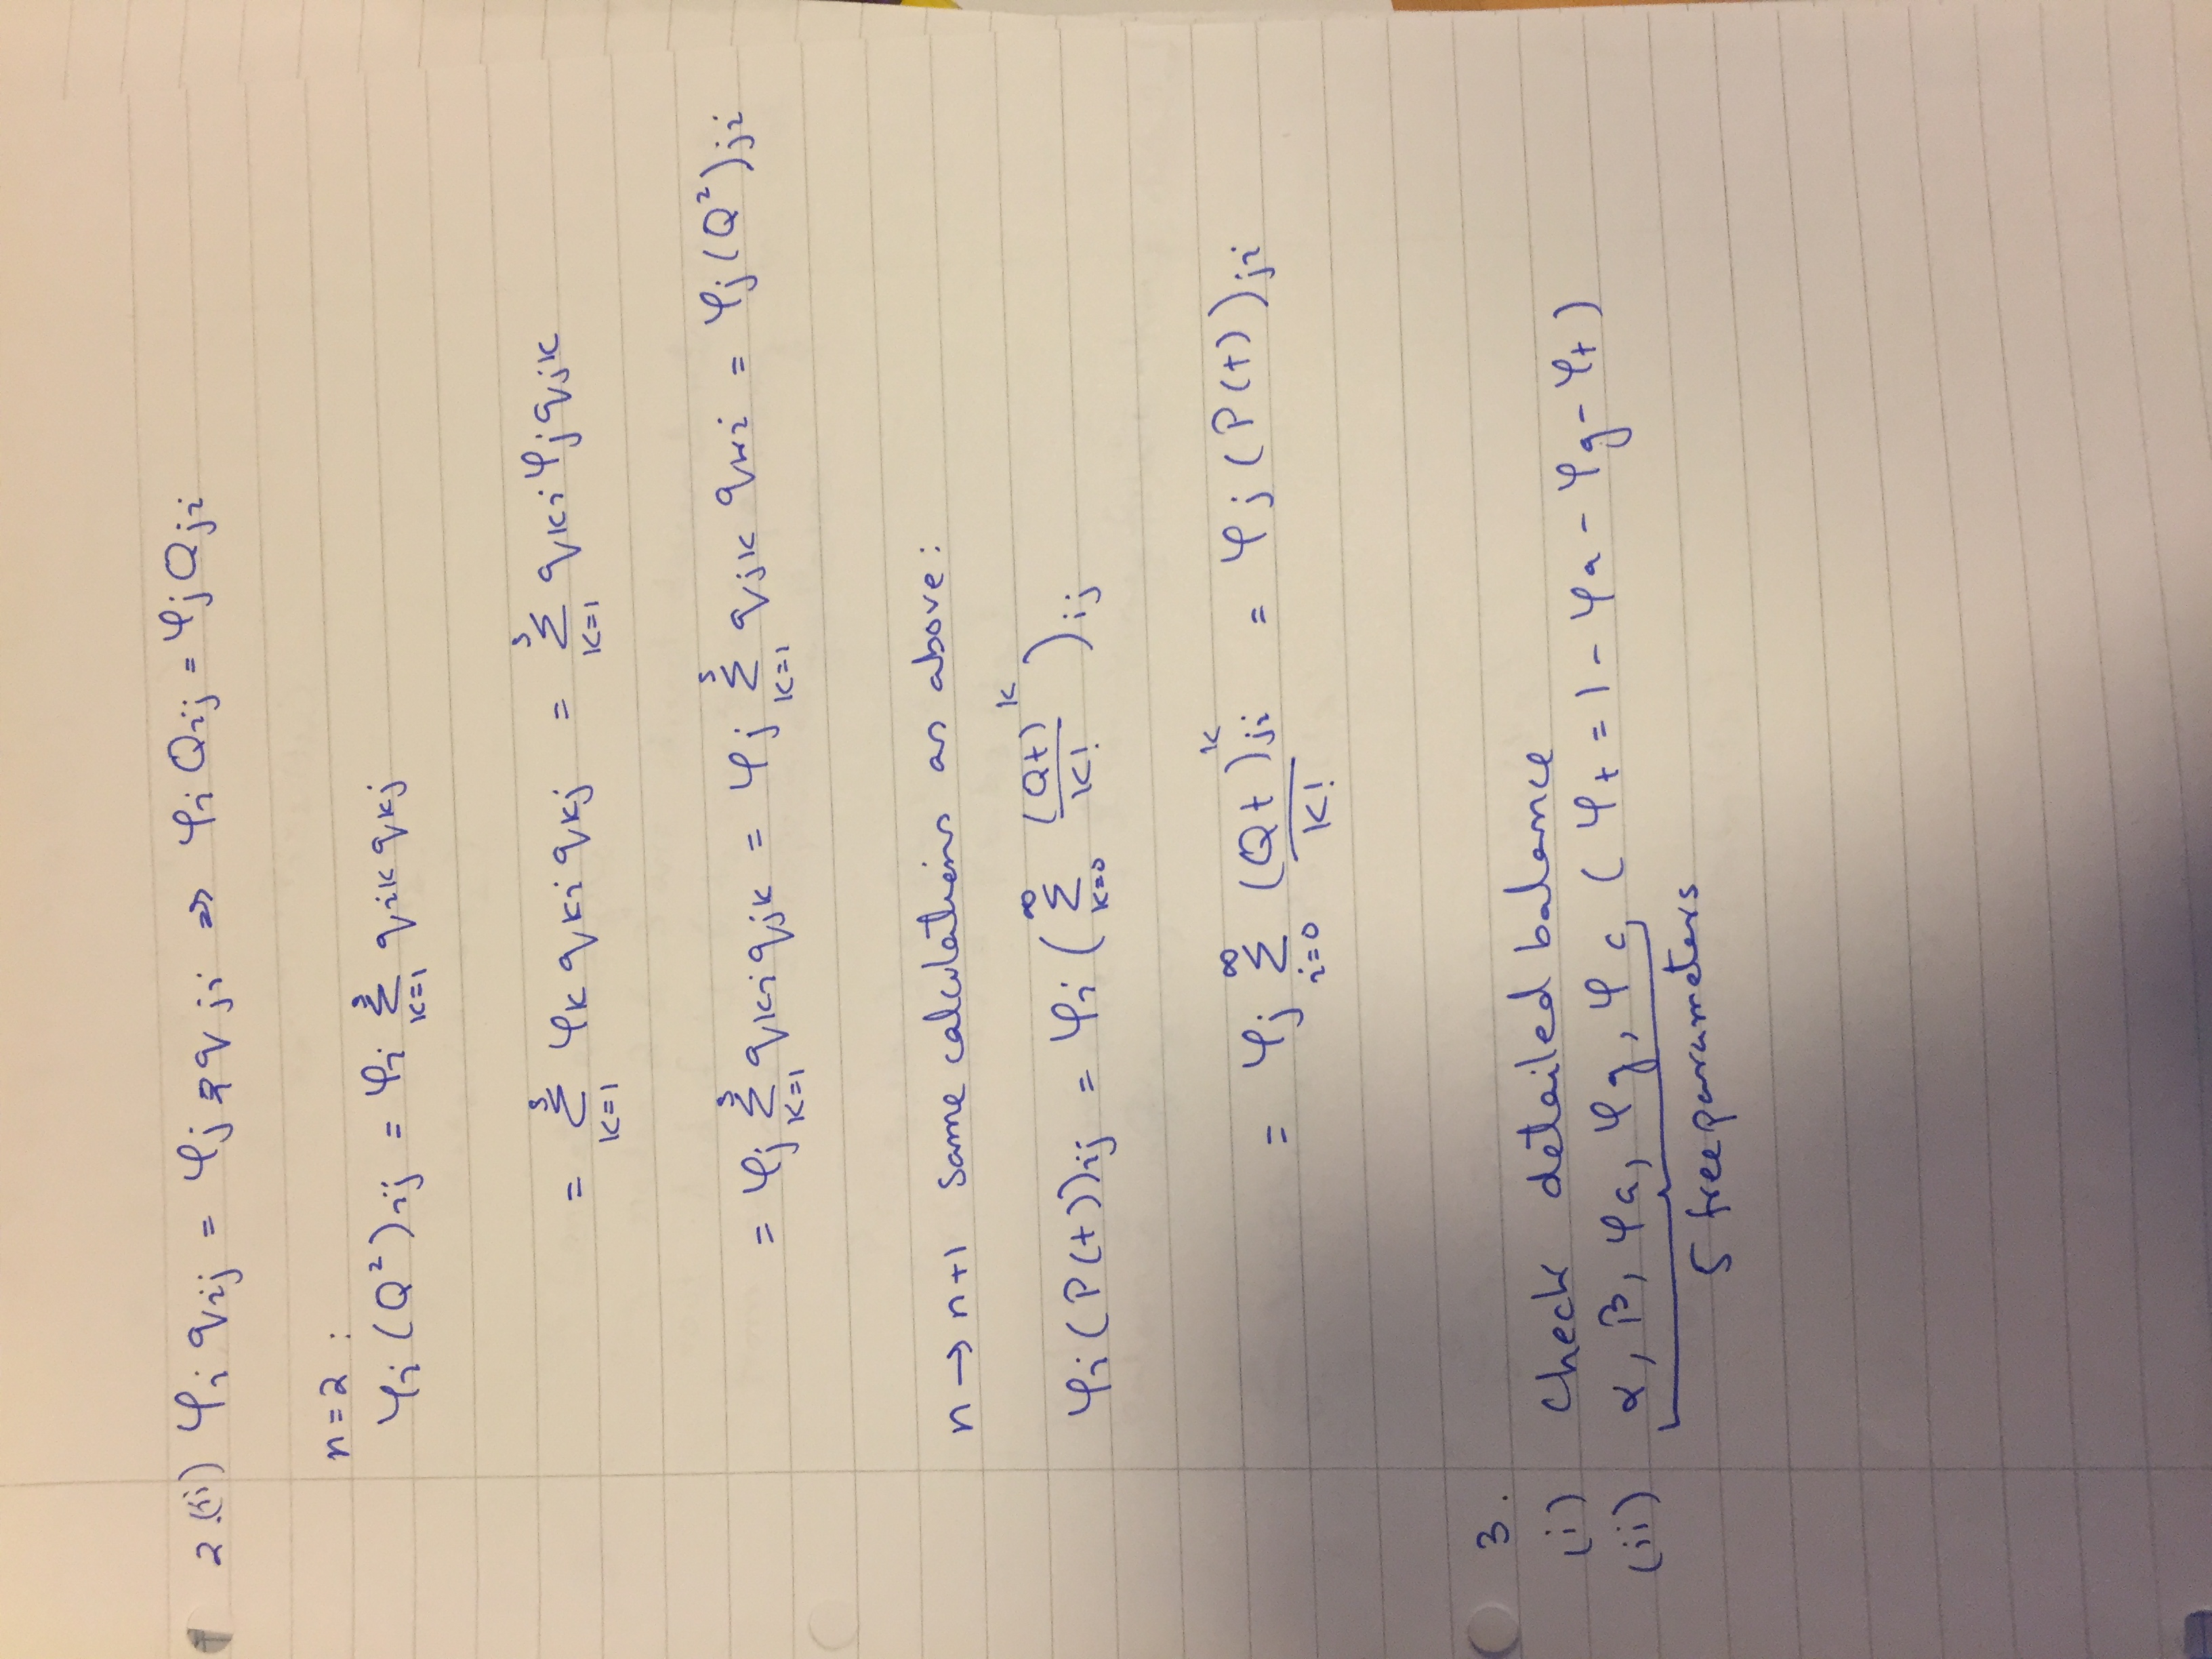 2.(ii) φi qij = φj q ji => φi Qij = φj Qji
n=2 :
φi (Q²)ij = φi Σ_{k=1}^{s} qik qkj
= Σ_{k=1}^{s} φk qki qkj = Σ_{k=1}^{s} qki φj qjk
= φj Σ_{k=1}^{s} qki qjk = φj Σ_{k=1}^{s} qjk qki = φj (Q²)ji
n → n+1 same calculations as above:
φi (P(t))ij = φi ( Σ_{k=0}^{∞} (Qt)^k / k! )ij
= φj Σ_{i=0}^{∞} (Qt)^k ji / k! = φj (P(t))ji
3.
(i) Check detailed balance
(ii) α, β, φa, φg, φc (φt = 1 - φa - φg - φt)
5 free parameters